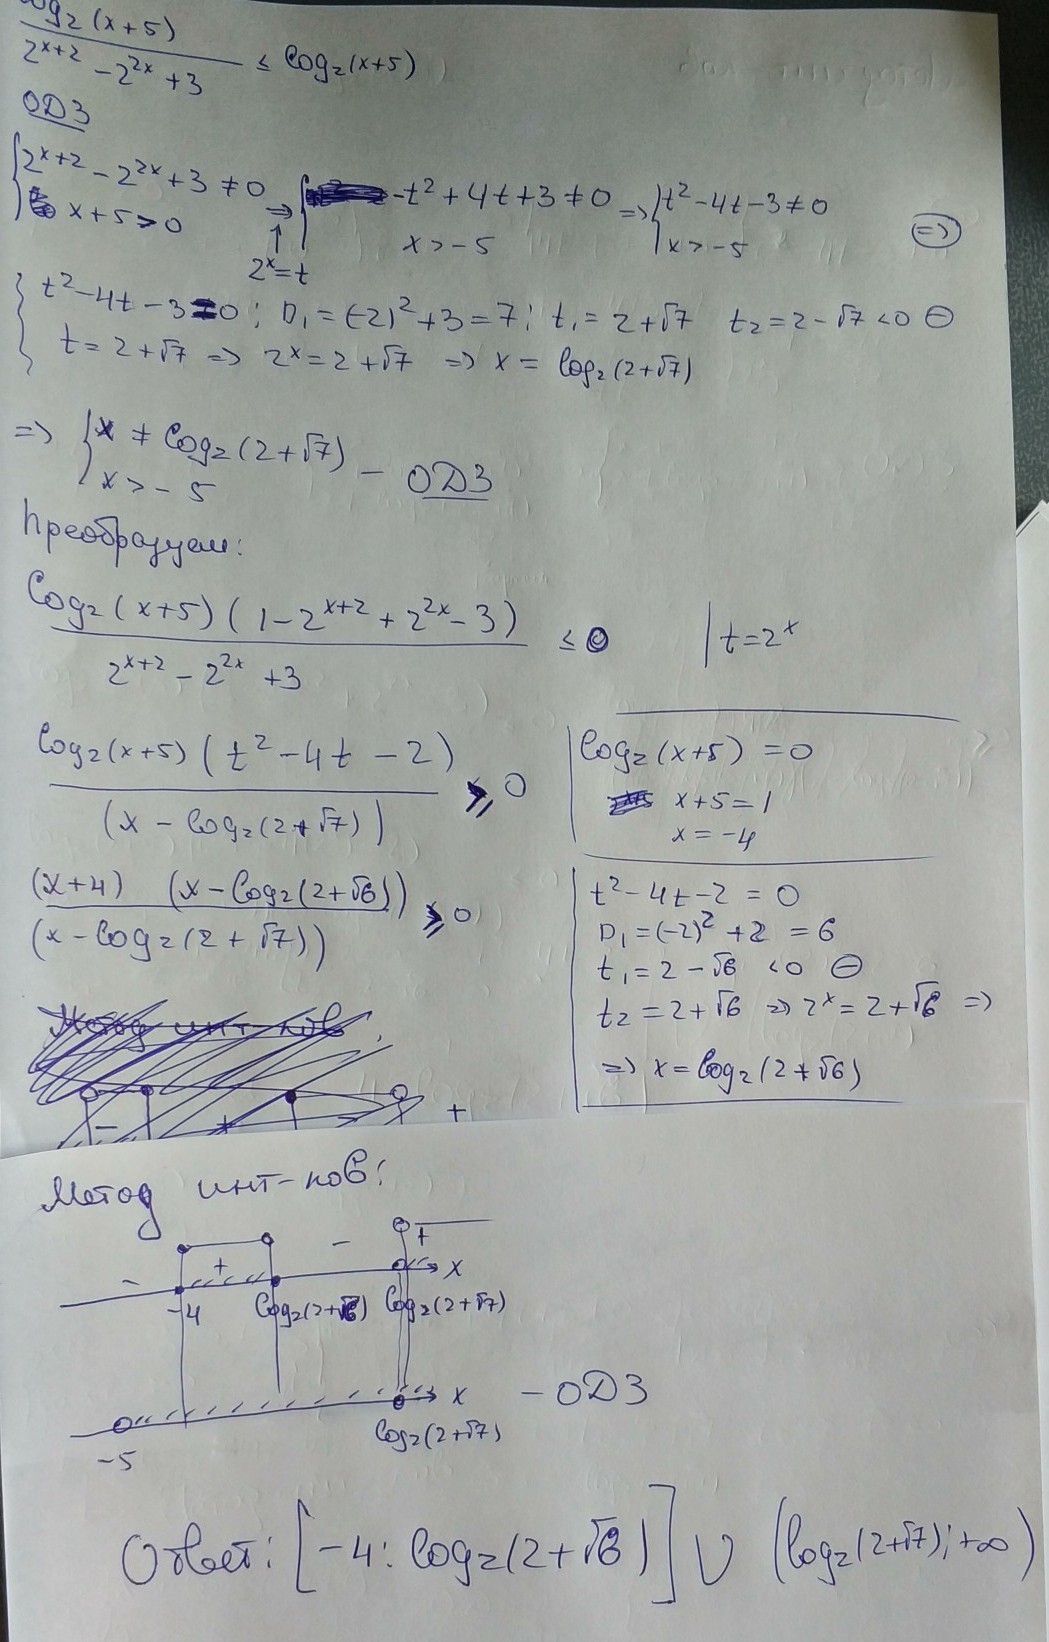 log₂(x+5) / (2^(x+2) - 2^(2x) + 3) ≤ log₂(x+5)
ОДЗ
{ 2^(x+2) - 2^(2x) + 3 ≠ 0 ⇒ { -t² + 4t + 3 ≠ 0 ⇒ { t² - 4t - 3 ≠ 0 ⇒
x+5 > 0 x > -5 x > -5
↑
2^x = t
{ t² - 4t - 3 = 0; D₁ = (-2)² + 3 = 7; t₁ = 2+√7 t₂ = 2-√7 < 0 ⊖
t = 2+√7 ⇒ 2^x = 2+√7 ⇒ x = log₂(2+√7)
⇒ { x ≠ log₂(2+√7)
x > -5 - ОДЗ
Преобразуем:
log₂(x+5)(1 - 2^(x+2) + 2^(2x) - 3) / (2^(x+2) - 2^(2x) + 3) ≤ 0 | t = 2^x
log₂(x+5)(t² - 4t - 2) / (x - log₂(2+√7)) ≥ 0
log₂(x+5) = 0
x+5 = 1
x = -4
(x+4) (x - log₂(2+√6)) / (x - log₂(2+√7)) ≥ 0
t² - 4t - 2 = 0
D₁ = (-2)² + 2 = 6
t₁ = 2 - √6 < 0 ⊖
t₂ = 2+√6 ⇒ 2^x = 2+√6 ⇒
⇒ x = log₂(2+√6)
Метод инт-ков,
- + - +
Метод инт-ков:
- + - + x
-4 log₂(2+√6) log₂(2+√7)
x - ОДЗ
-5 log₂(2+√7)
Ответ: [-4; log₂(2+√6)] ∪ (log₂(2+√7); +∞)